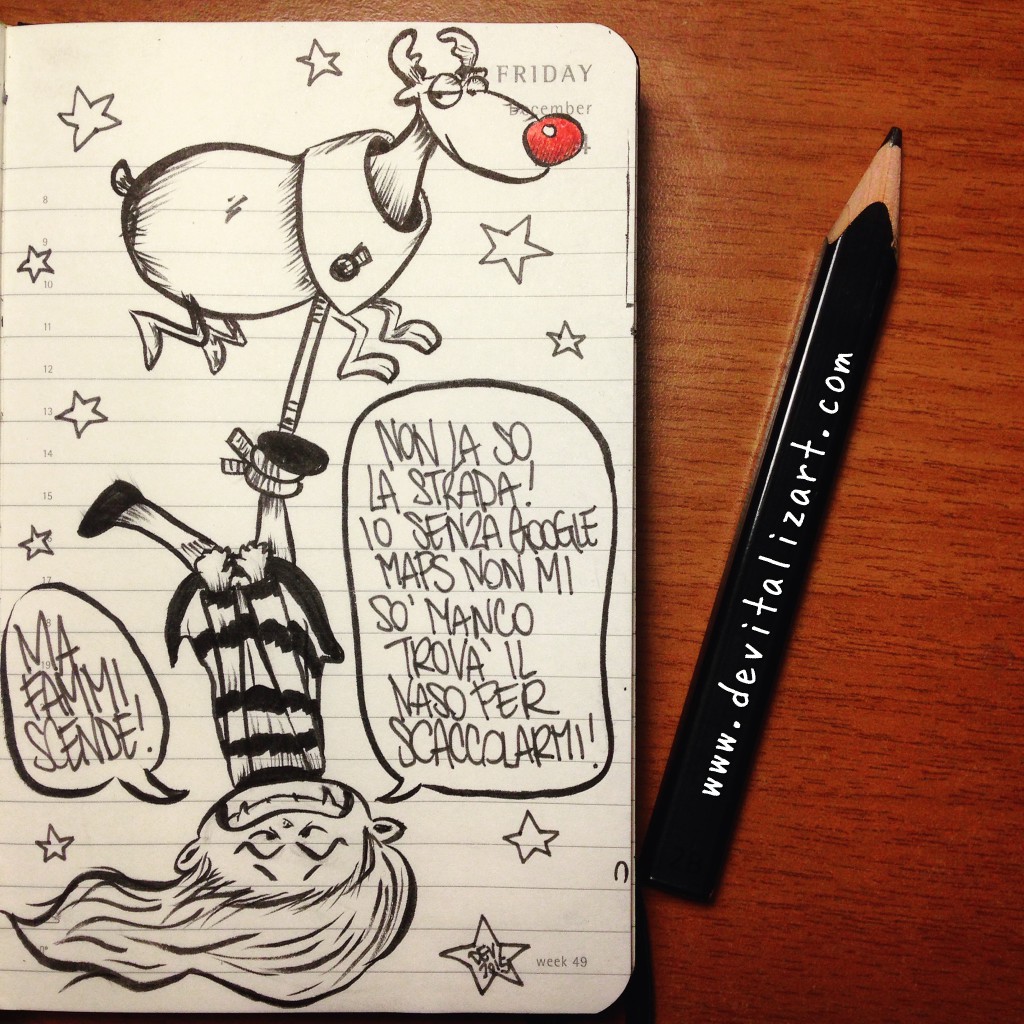 FRIDAY
December
4
8
9
10
11
12
13
14
15
17
18
19
NON LA SO
LA STRADA!
IO SENZA GOOGLE
MAPS NON MI
SO' MANCO
TROVA' IL
NASO PER
SCACCOLARMI!
MA
FAMMI
SCENDE!
DEVI
2015
week 49
www.devitalizart.com